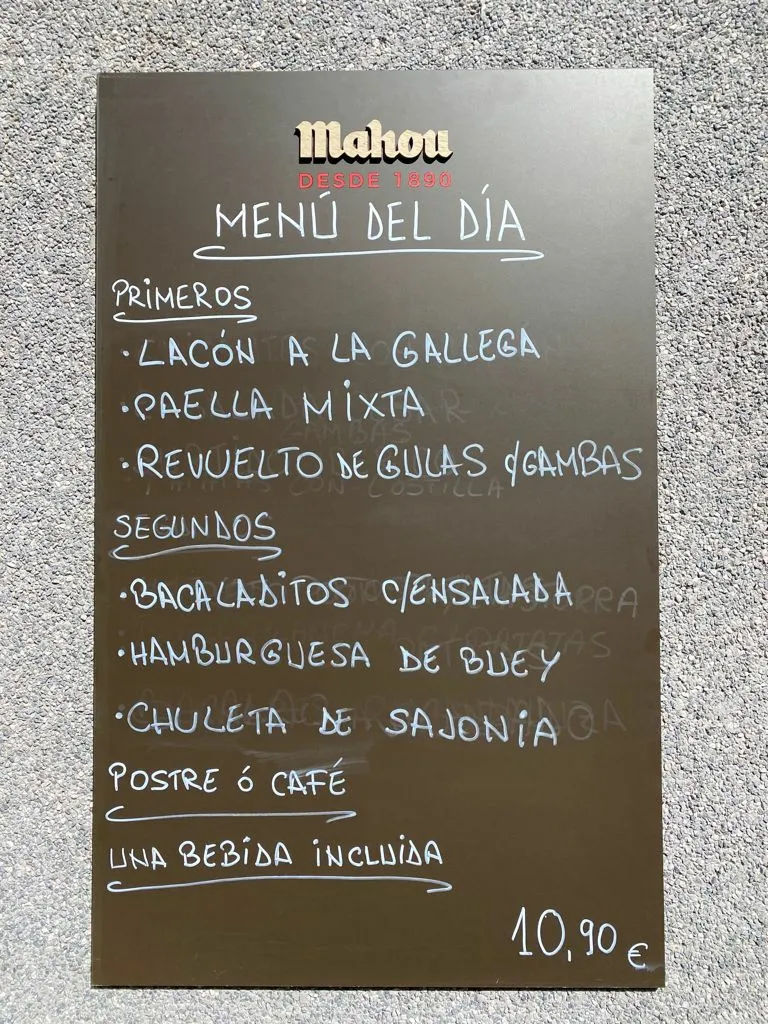 Mahou
DESDE 1890
MENÚ DEL DÍA
PRIMEROS
·LACÓN A LA GALLEGA
·PAELLA MIXTA
·REVUELTO DE GULAS C/GAMBAS
SEGUNDOS
·BACALADITOS C/ENSALADA
·HAMBURGUESA DE BUEY
·CHULETA DE SAJONIA
POSTRE Ó CAFÉ
UNA BEBIDA INCLUIDA
10,90 €